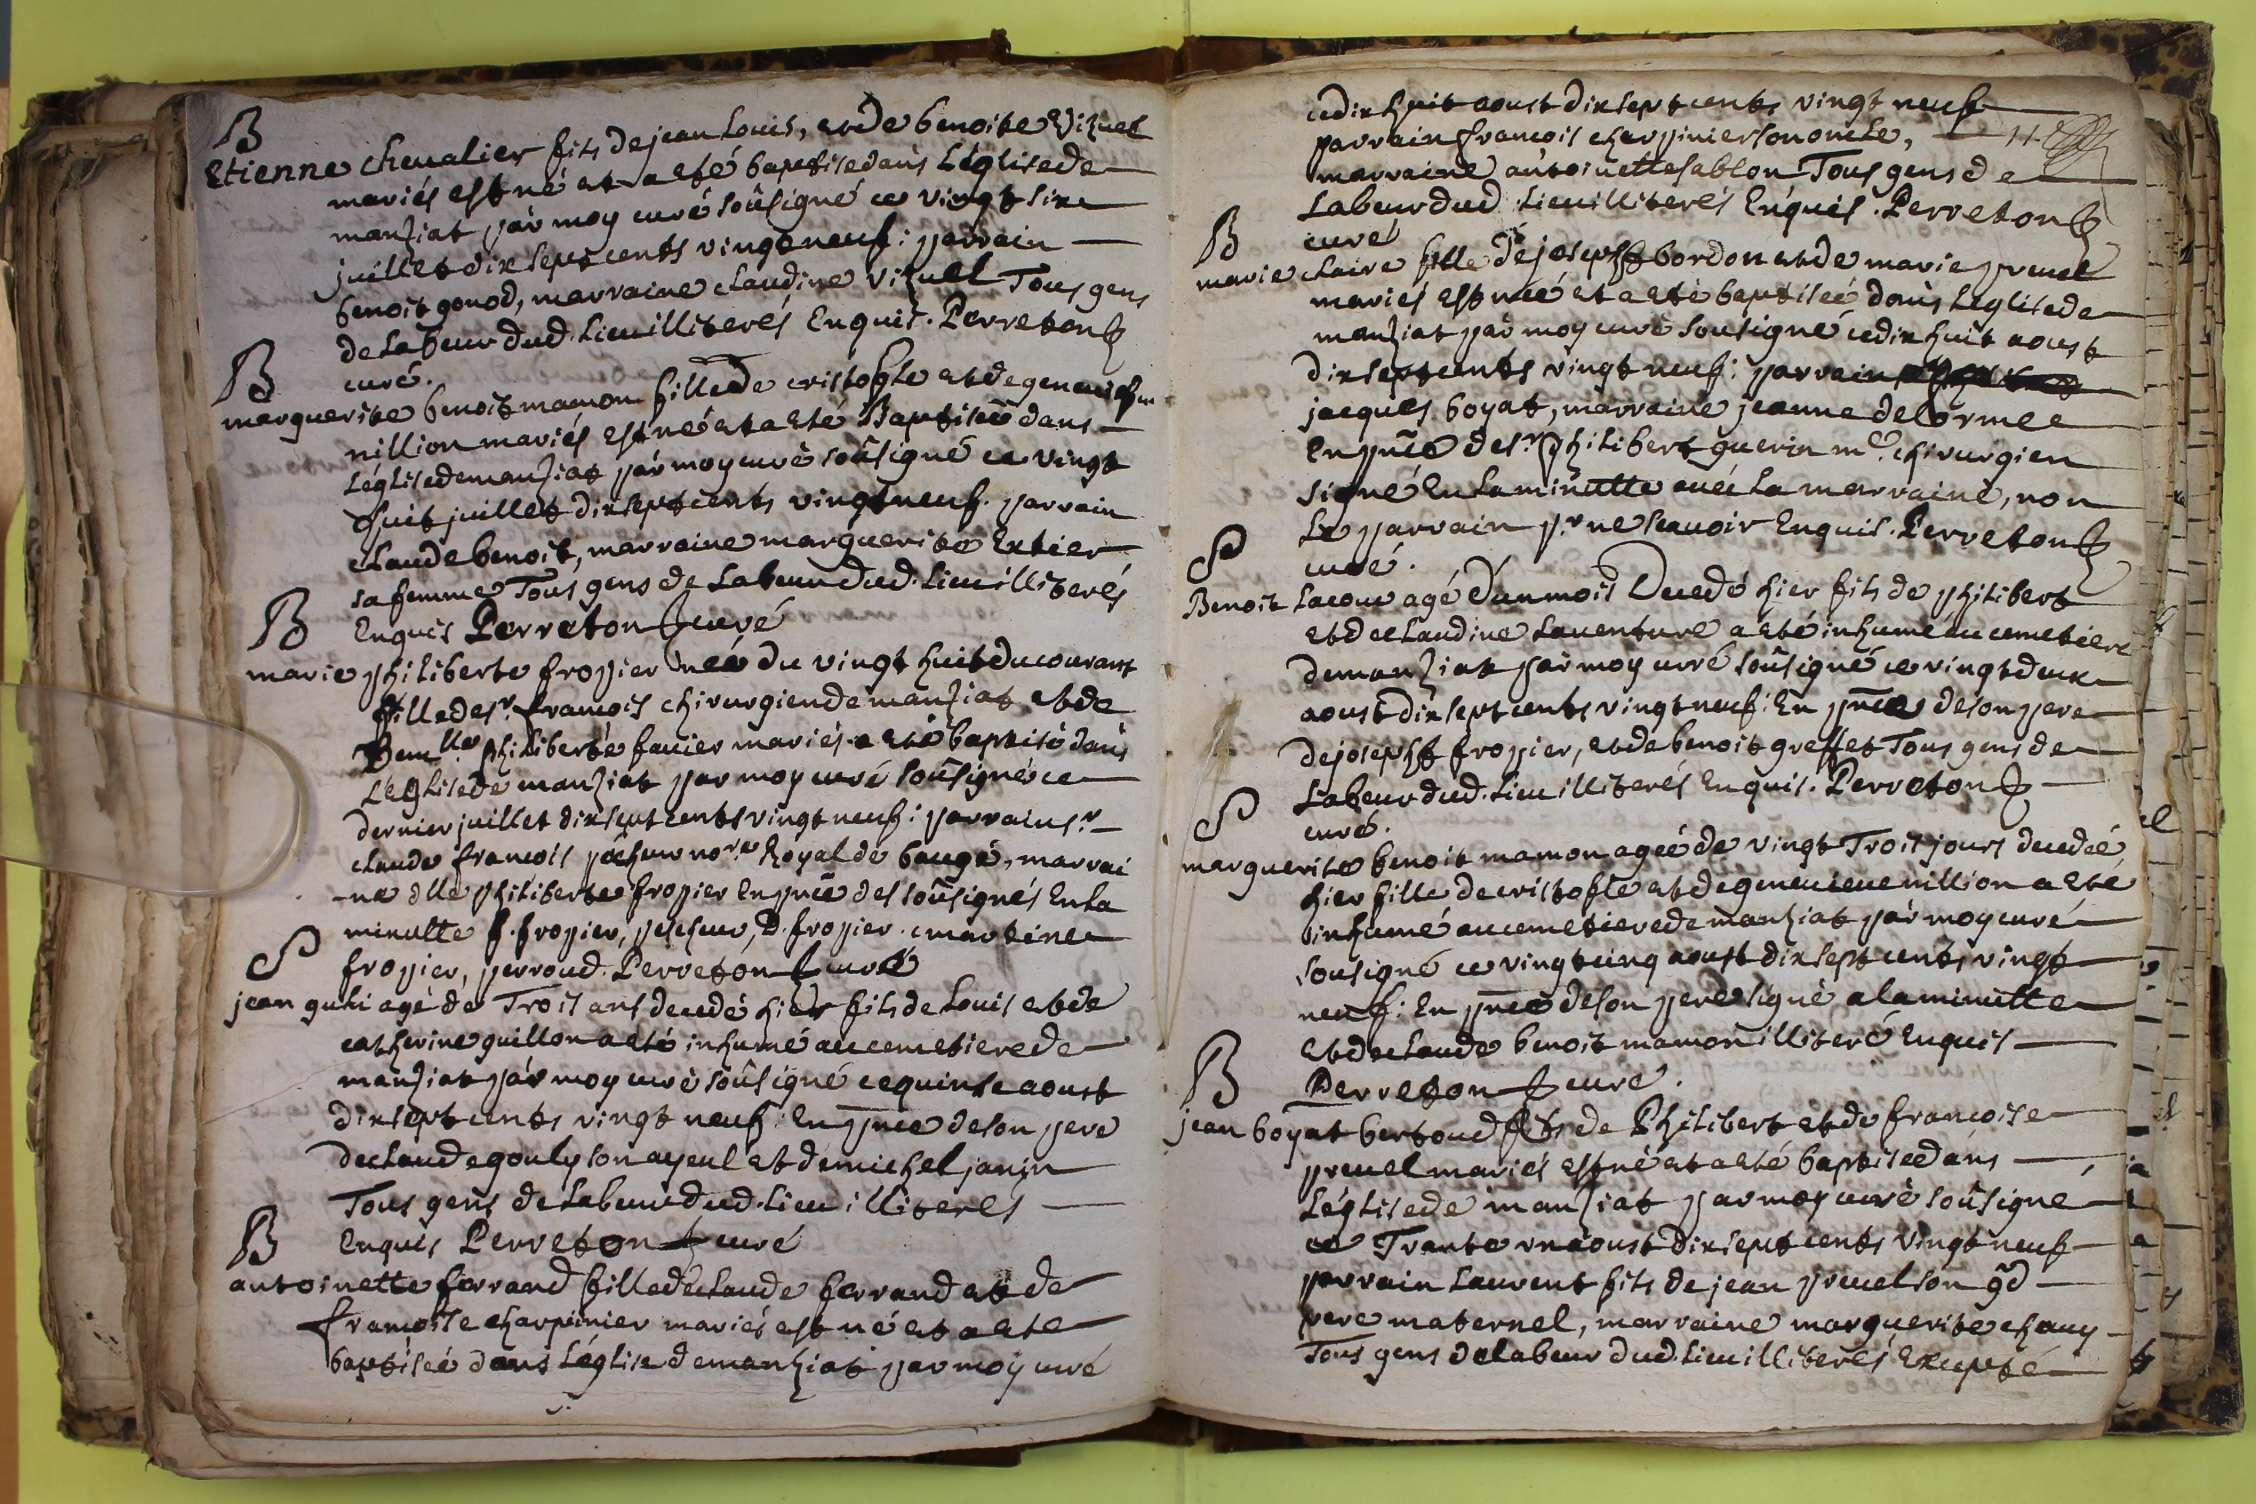 B
Etienne chevalier fils de jean Louis, et de benoite Vizuel
mariés est né et a eté baptisé dans Léglise de
manziat par moy curé soûsigné ce vingt six
juillet dix sept cents vingt neuf : parrain
benoit gonod, marraine claudine Vizuel Tous gens
de Labeur dud. Lieu illiterés Enquis. Perreton
curé.
B
marguerite benoit mamon fille de cristophle et de genevieve
nillion mariés est né et a eté Baptisée dans
Léglise de manziat par moy curé soûsigné ce vingt
huit juillet dix sept cents vingt neuf. parrain
claude benoit, marraine marguerite Extier
sa femme Tous gens de Labeur dud. Lieu illiterés
Enquis Perreton curé
B
marie philiberte fropier née du vingt huit du courant
fille de sr. francois chirurgien de manziat et de
Demlle. philiberte favier mariés a eté baptisé dans
Léglise de manziat par moy curé soûsigné ce
dernier juillet dix sept cents vingt neuf : parrain sr.
claude francois pecheur nore. Royal de baugé, marrai
-ne dlle philiberte fropier En pnce des soûsignés En la
minutte f. fropier, pecheur, D. fropier. c martine
fropier, perroud. Perreton curé
S
jean guhi agé de Trois ans decedé hier fils de Louis et de
catherine guillon a eté inhumé au cemetiere de
manziat par moy curé soûsigné ce quinze aoust
dix sept cents vingt neuf : En pnce de son pere
de claude gouly son ayeul et de michel janin
Tous gens de Labeur dud. Lieu illiterés
Enquis Perreton curé
B
antoinette ferrand fille de claude ferrand et de
francoise charpinier mariés est né et a eté
baptisée dans Léglise de manziat par moy curé
ce dix huit aoust dix sept cents vingt neuf
parrain francois charpinier son oncle,
marraine antoinette sablon Tous gens de
Labeur dud. Lieu illiterés Enquis. Perreton
curé
B
marie claire fille de joseph bordon et de marie pruvel
mariés est née et a eté baptisée dans Léglise de
manziat par moy curé sousigné ce dix huit aoust
dix sept cents vingt neuf : parrain
jacques boyat, marraine jeanne delorme
En pnce de sr. philibert guerin me. chirurgien
signé En la minutte avec La marraine, non
Le parrain pr. ne scavoir Enquis. Perreton
curé.
S
Benoit Lacour agé d'un mois Decedé hier fils de philibert
et de claudine Laventure a eté inhumé au cemetiere
de manziat par moy curé soûsigné ce vingt deux
aoust dix sept cents vingt neuf : En pnce de son pere
de joseph fropier, et de benoit greffet Tous gens de
Labeur dud. Lieu illiterés Enquis. Perreton
curé.
S
marguerite benoit mamon agée de vingt Trois jours decedée
hier fille de cristofle et de genevieve nillion a eté
inhumé au cemetiere de manziat par moy curé
sousigné ce vingt cinq aoust dix sept cents vingt
neuf : En pnce de son pere signé a la minutte
et de claude benoit mamon illiteré Enquis
Perreton curé.
B
jean boyat bertoud fils de Philibert et de francoise
pruvel mariés est né et a eté baptisé dans
Léglise de manziat par moy curé soûsigné
ce Trante un aoust dix sept cents vingt neuf
parrain Laurent fils de jean pruvel son gd
pere maternel, marraine marguerite
Tous gens de labeur dud. Lieu illiterés Excepté